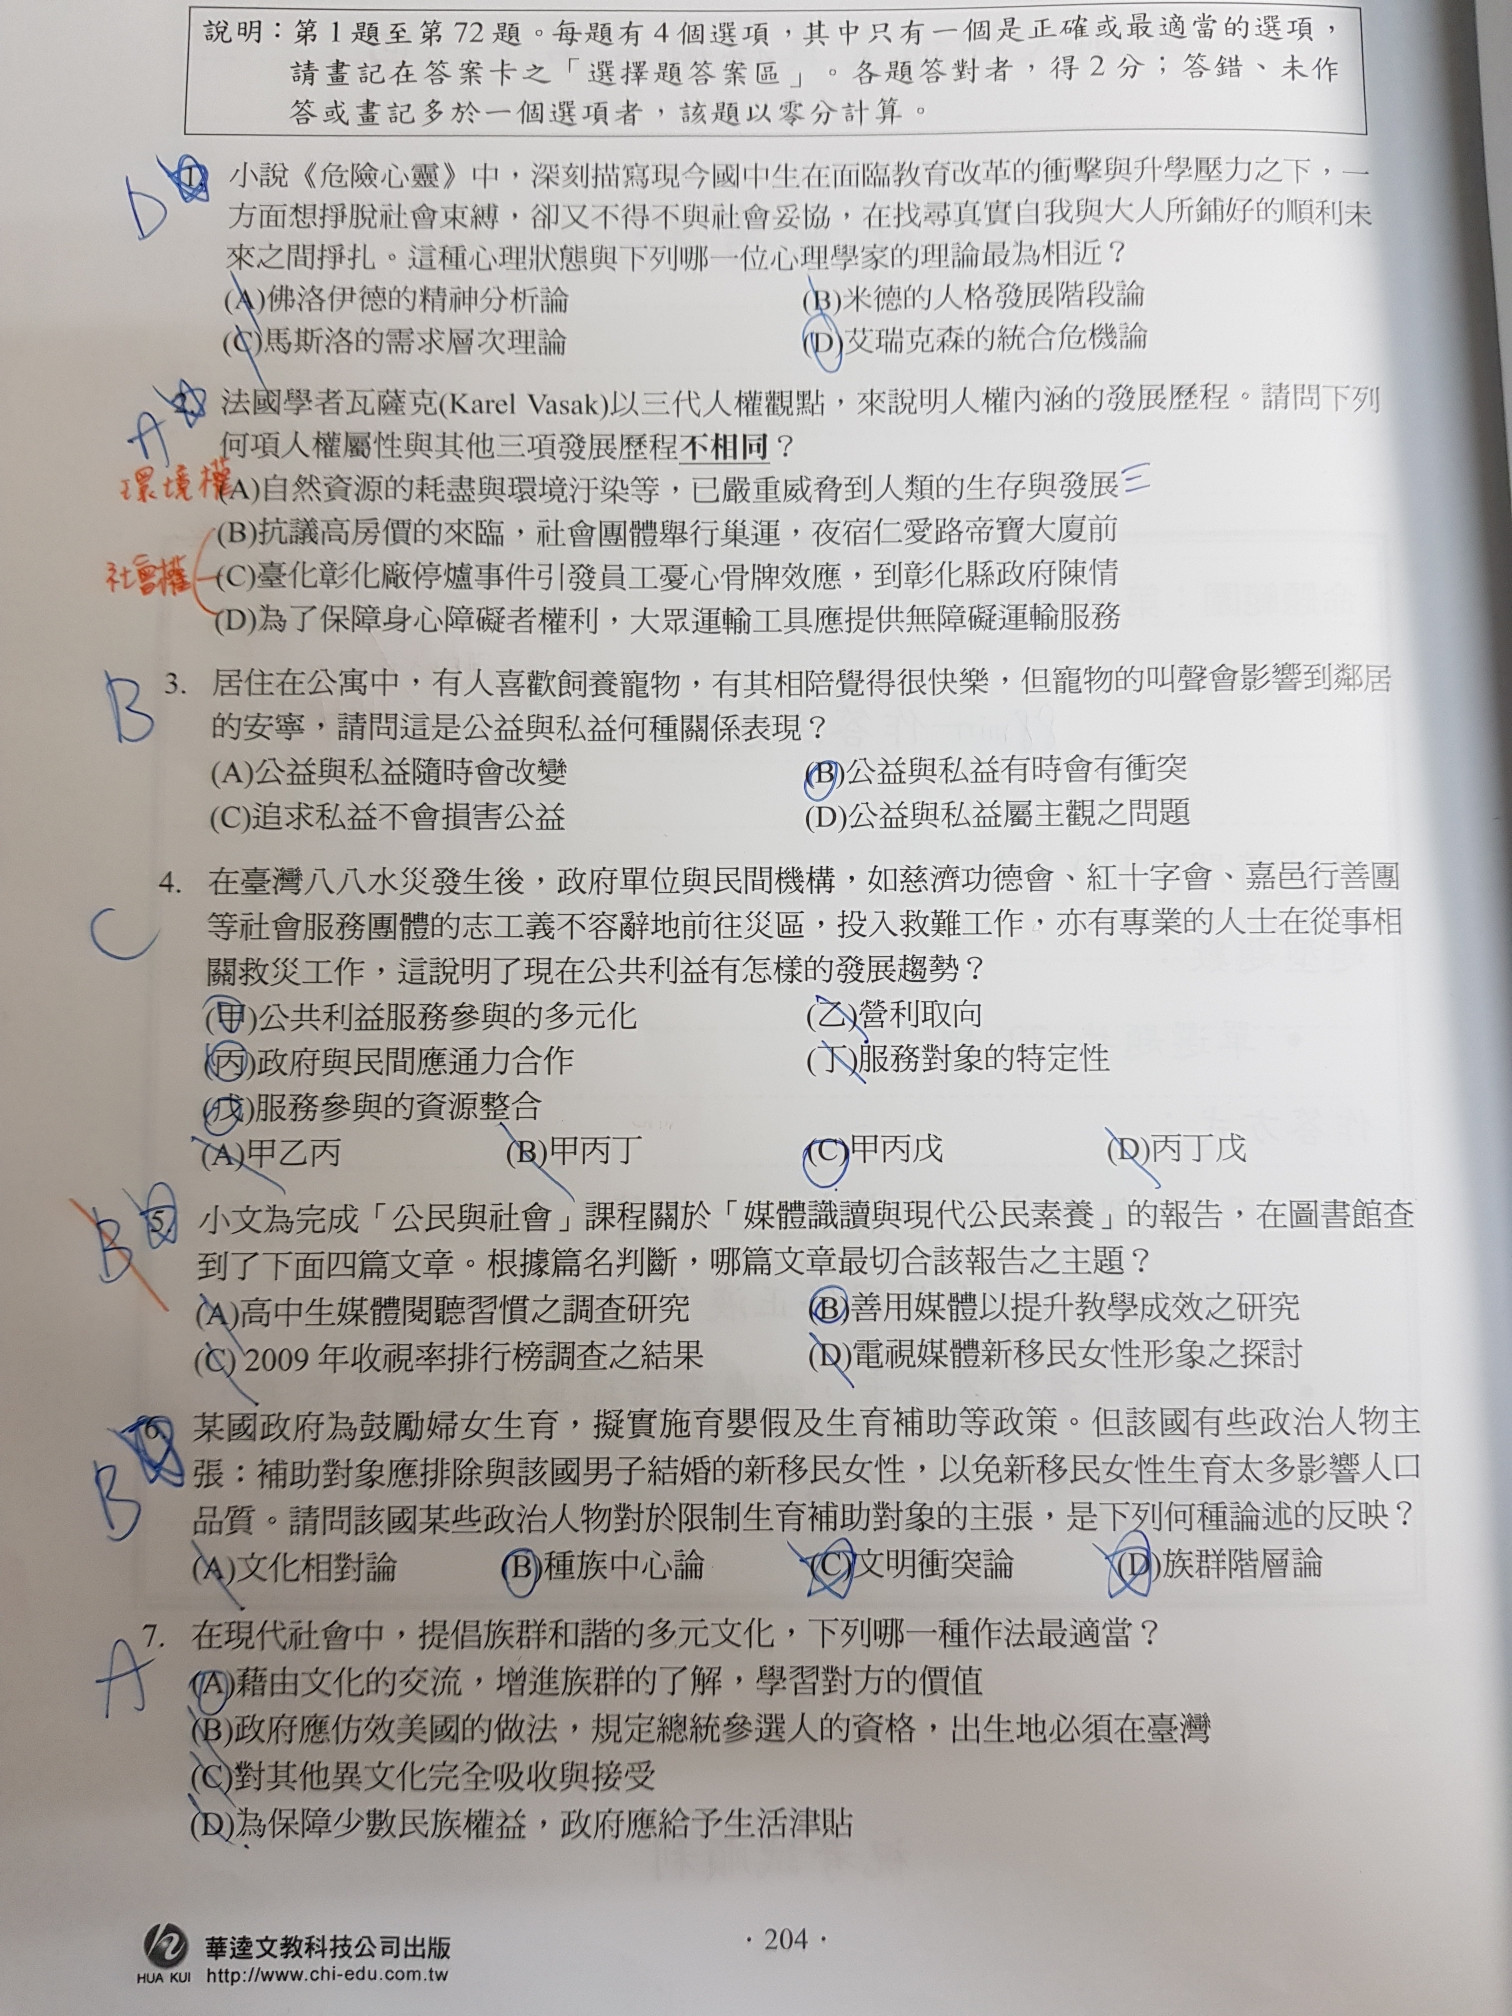 說明：第1題至第72題。每題有4個選項，其中只有一個是正確或最適當的選項，
請畫記在答案卡之「選擇題答案區」。各題答對者，得2分；答錯、未作
答或畫記多於一個選項者，該題以零分計算。
D 1. 小說《危險心靈》中，深刻描寫現今國中生在面臨教育改革的衝擊與升學壓力之下，一
方面想掙脫社會束縛，卻又不得不與社會妥協，在找尋真實自我與大人所鋪好的順利未
來之間掙扎。這種心理狀態與下列哪一位心理學家的理論最為相近？
(A)佛洛伊德的精神分析論 (B)米德的人格發展階段論
(C)馬斯洛的需求層次理論 (D)艾瑞克森的統合危機論
A 2. 法國學者瓦薩克(Karel Vasak)以三代人權觀點，來說明人權內涵的發展歷程。請問下列
何項人權屬性與其他三項發展歷程不相同？
環境權 (A)自然資源的耗盡與環境汙染等，已嚴重威脅到人類的生存與發展 三
(B)抗議高房價的來臨，社會團體舉行巢運，夜宿仁愛路帝寶大廈前
社會權 (C)臺化彰化廠停爐事件引發員工憂心骨牌效應，到彰化縣政府陳情
(D)為了保障身心障礙者權利，大眾運輸工具應提供無障礙運輸服務
B 3. 居住在公寓中，有人喜歡飼養寵物，有其相陪覺得很快樂，但寵物的叫聲會影響到鄰居
的安寧，請問這是公益與私益何種關係表現？
(A)公益與私益隨時會改變 (B)公益與私益有時會有衝突
(C)追求私益不會損害公益 (D)公益與私益屬主觀之問題
C 4. 在臺灣八八水災發生後，政府單位與民間機構，如慈濟功德會、紅十字會、嘉邑行善團
等社會服務團體的志工義不容辭地前往災區，投入救難工作，亦有專業的人士在從事相
關救災工作，這說明了現在公共利益有怎樣的發展趨勢？
(甲)公共利益服務參與的多元化 (乙)營利取向
(丙)政府與民間應通力合作 (丁)服務對象的特定性
(戊)服務參與的資源整合
(A)甲乙丙 (B)甲丙丁 (C)甲丙戊 (D)丙丁戊
B 5. 小文為完成「公民與社會」課程關於「媒體識讀與現代公民素養」的報告，在圖書館查
到了下面四篇文章。根據篇名判斷，哪篇文章最切合該報告之主題？
(A)高中生媒體閱聽習慣之調查研究 (B)善用媒體以提升教學成效之研究
(C) 2009 年收視率排行榜調查之結果 (D)電視媒體新移民女性形象之探討
B 6. 某國政府為鼓勵婦女生育，擬實施育嬰假及生育補助等政策。但該國有些政治人物主
張：補助對象應排除與該國男子結婚的新移民女性，以免新移民女性生育太多影響人口
品質。請問該國某些政治人物對於限制生育補助對象的主張，是下列何種論述的反映？
(A)文化相對論 (B)種族中心論 (C)文明衝突論 (D)族群階層論
A 7. 在現代社會中，提倡族群和諧的多元文化，下列哪一種作法最適當？
(A)藉由文化的交流，增進族群的了解，學習對方的價值
(B)政府應仿效美國的做法，規定總統參選人的資格，出生地必須在臺灣
(C)對其他異文化完全吸收與接受
(D)為保障少數民族權益，政府應給予生活津貼
HUA KUI 華逵文教科技公司出版
http://www.chi-edu.com.tw
·204·